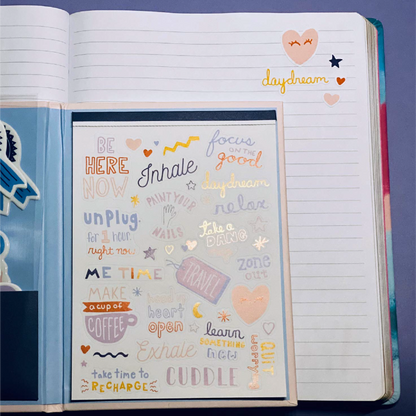 daydream
BE
HERE
NOW
Inhale
focus
ON THE
good
PAINT YOUR
NAILS
daydream
relax
unplug
for 1 hour.
right now.
take a
DANG
ME TIME
TRAVEL
zone
out
MAKE
a cup of
COFFEE
heart
open
learn
SOMETHING
NEW
QUIT
WORRY
Exhale
take time to
RECHARGE
CUDDLE